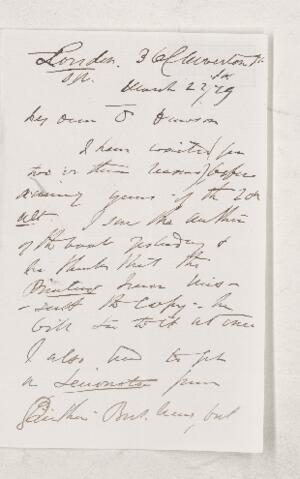 London. 36 Claverton St
SW.
March 22nd/79
My dear Dr Dawson
I have waited for
two or three reasons before
answering yours of the 20th
ult. I saw the author
of the book yesterday &
he thinks that the
Printers have mis-
sent the copy - he
will see to it at once
I also tried to get
a from
Brit. but